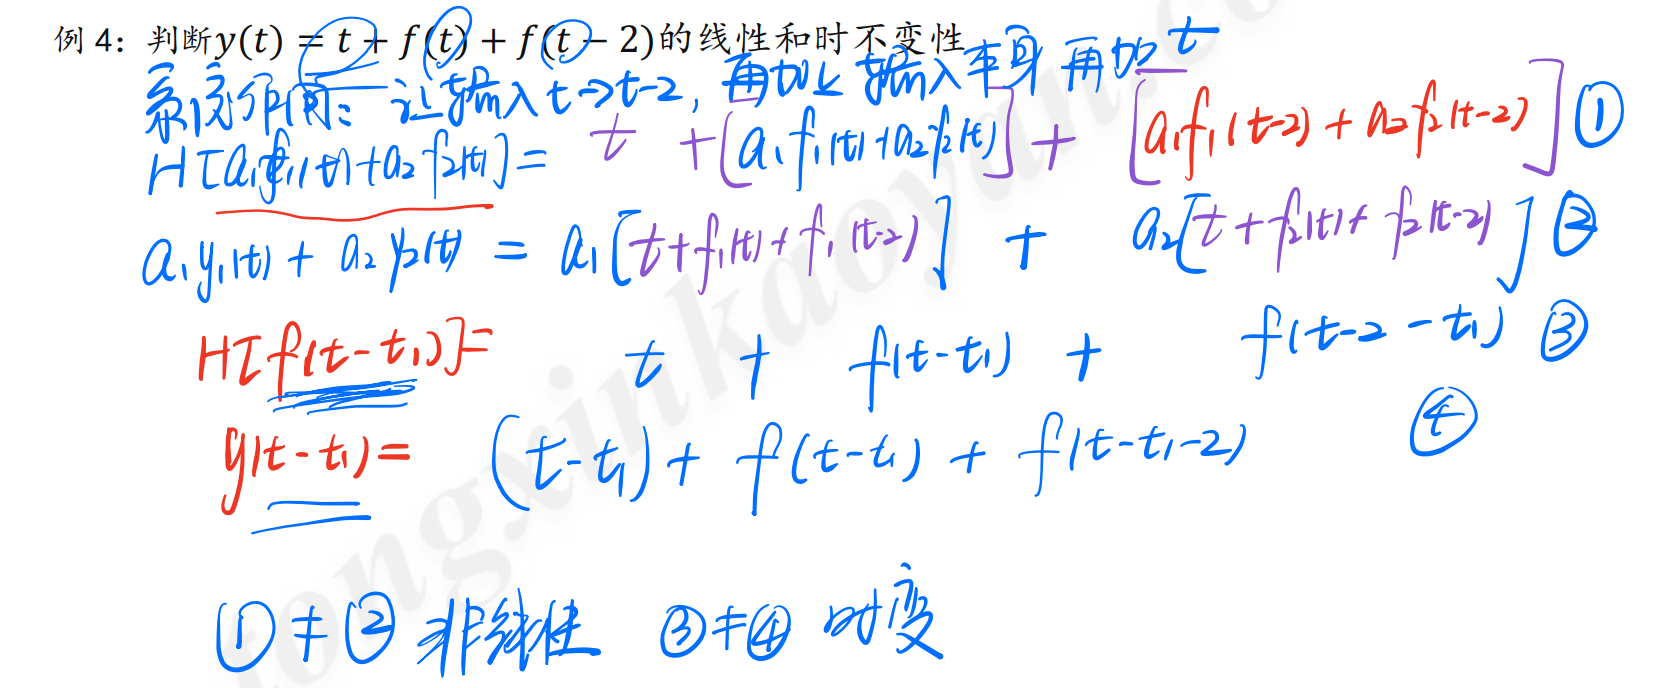 例 4：判断y(t) = t + f(t) + f(t − 2)的线性和时不变性
系统作用：让输入t→t-2, 再加上输入本身 再加t
H[a₁f₁(t)+a₂f₂(t)] = t + [a₁f₁(t)+a₂f₂(t)] + [a₁f₁(t-2) + a₂f₂(t-2)] ①
a₁y₁(t) + a₂y₂(t) = a₁[t+f₁(t)+f₁(t-2)] + a₂[t+f₂(t)+f₂(t-2)] ②
H[f(t-t₁)] = t + f(t-t₁) + f(t-2-t₁) ③
y(t-t₁) = (t-t₁) + f(t-t₁) + f(t-t₁-2) ④
①≠② 非线性 ③≠④ 时变
tongxinkaoyan.co